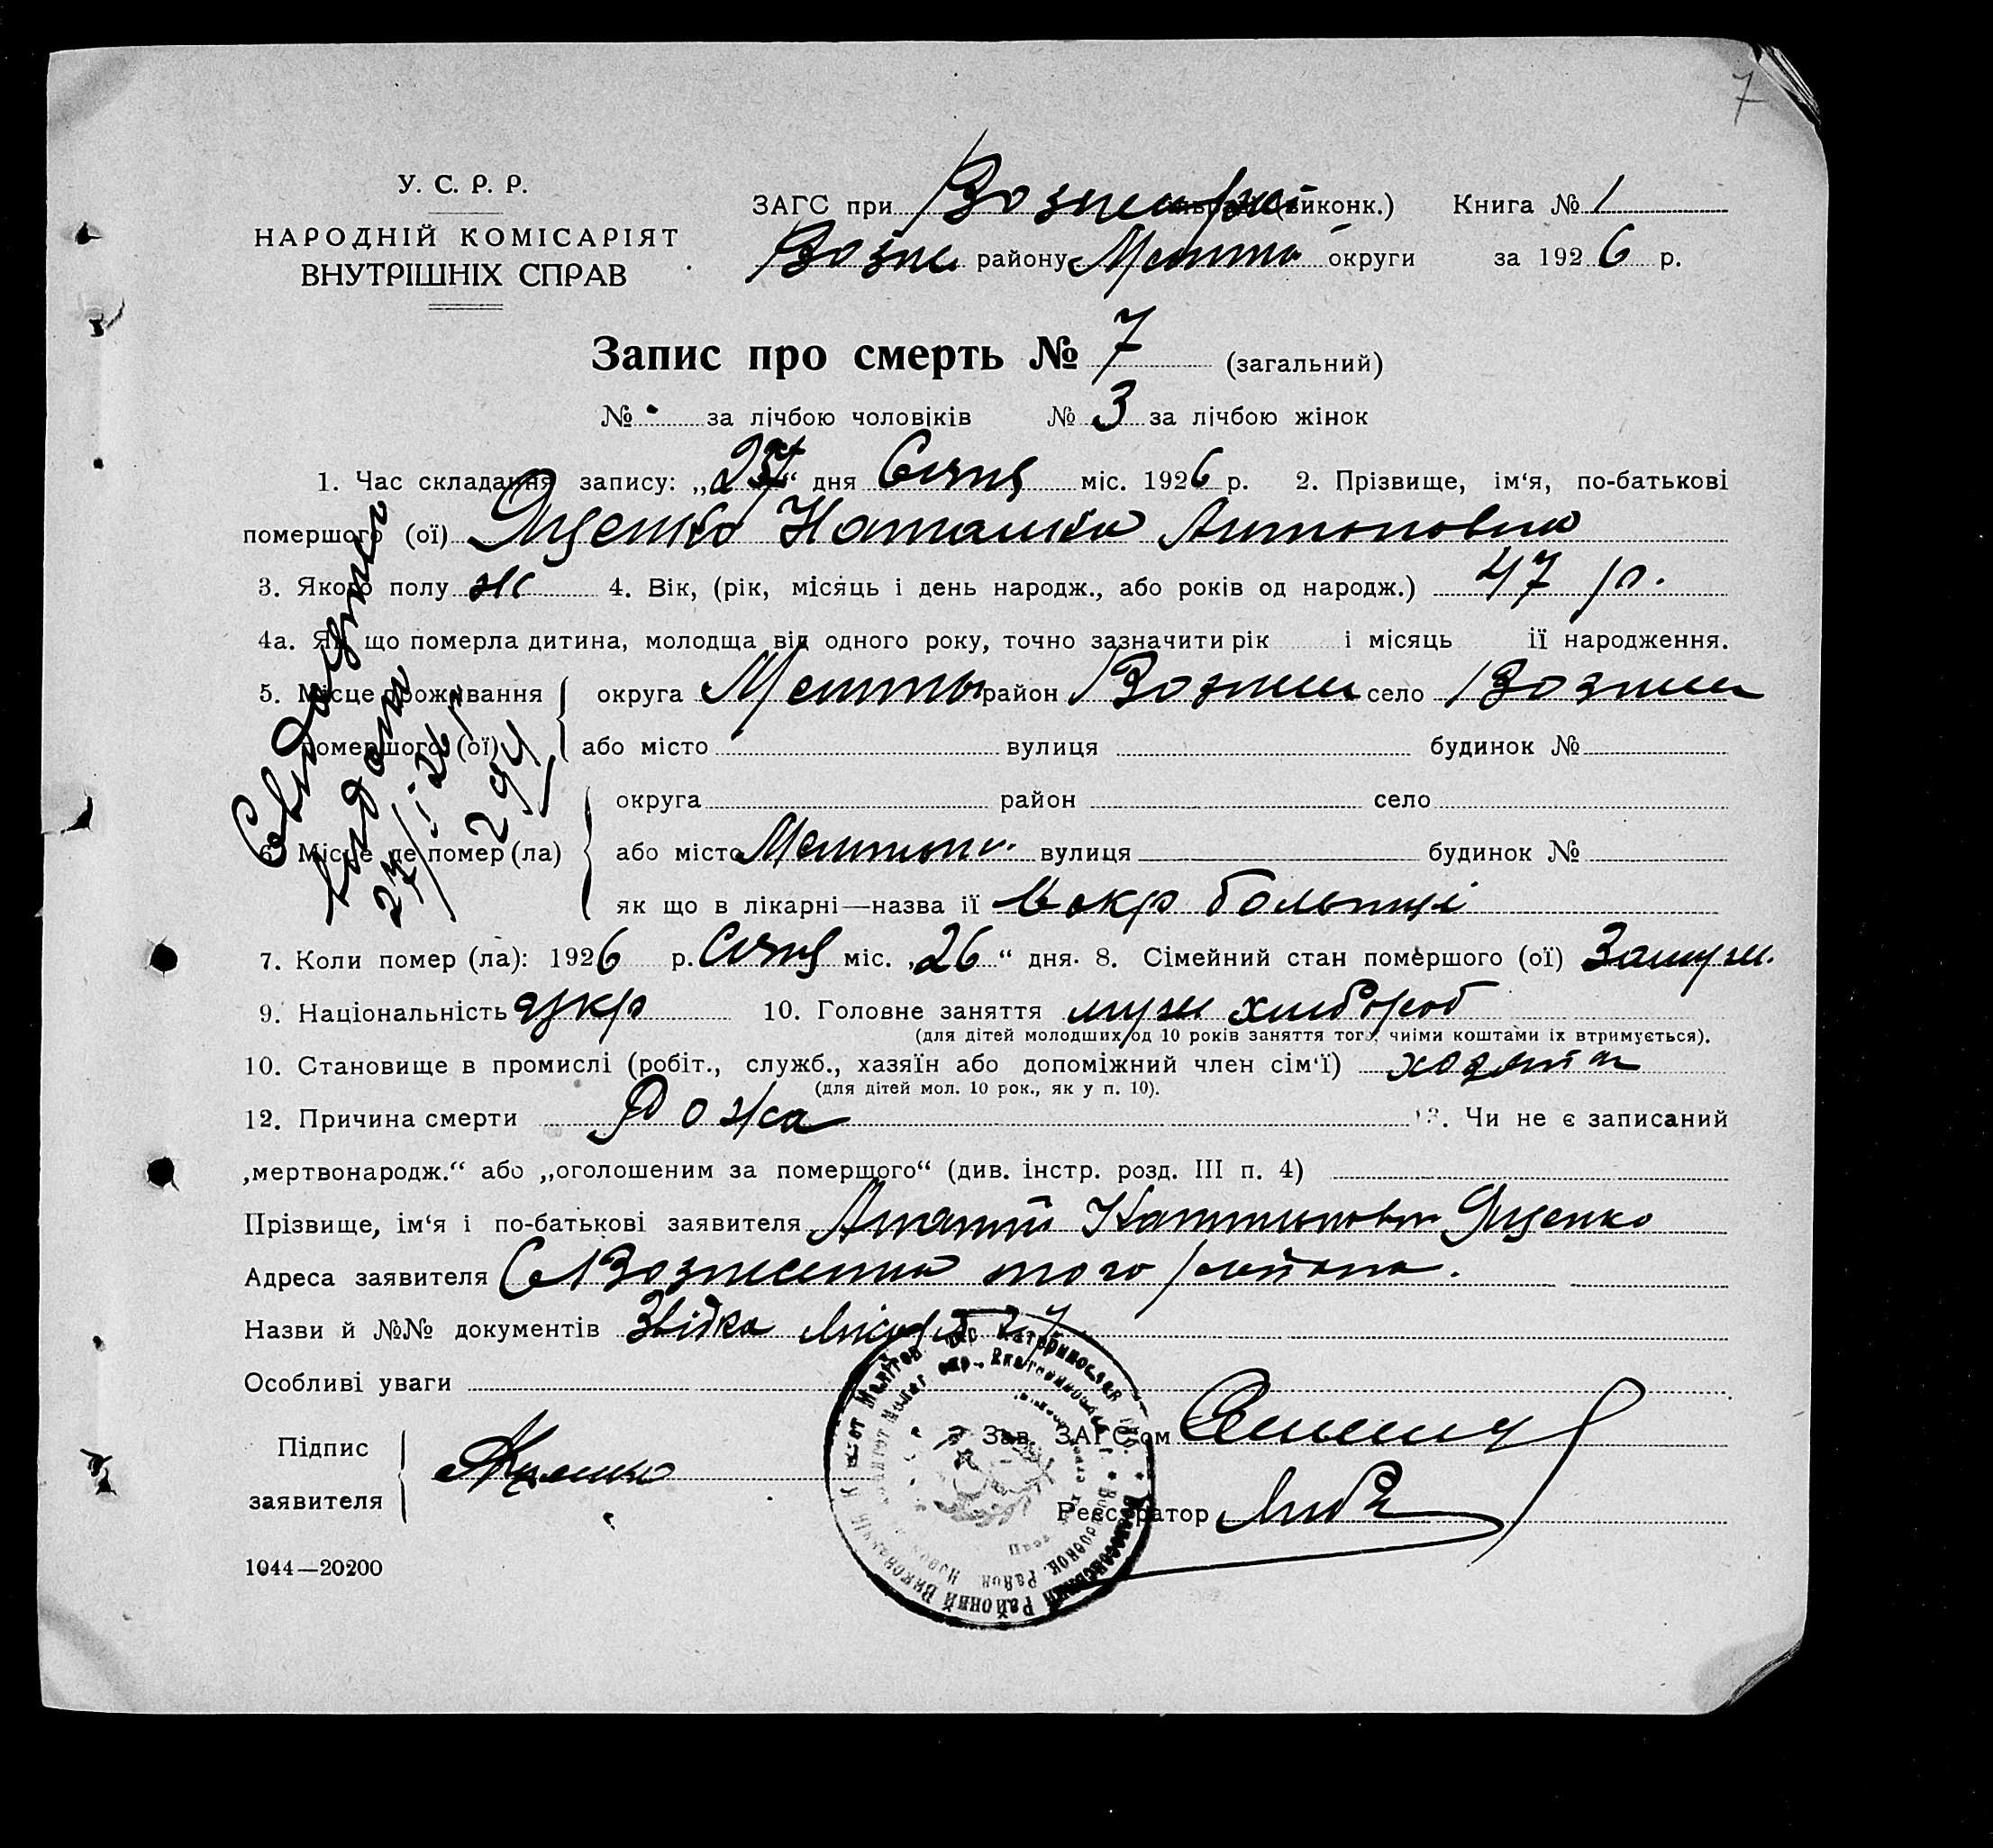 7
У. С. Р. Р.
НАРОДНІЙ КОМІСАРІЯТ
ВНУТРІШНІХ СПРАВ
ЗАГС при (виконк.) Книга № 1
Возне району Меліт округи за 1926 р.
Запис про смерть № 7 (загальний)
№ за лічбою чоловіків № 3 за лічбою жінок
1. Час складання запису: „27“ дня Січня міс. 1926 р. 2. Прізвище, ім‘я, по-батькові
помершого (ої) Яценко Наталія Антоновна
3. Якого полу ж 4. Вік, (рік, місяць і день народж., або років од народж.) 47 р.
4а. Як що померла дитина, молодща від одного року, точно зазначити рік і місяць її народження.
5. Місце проживання округа район Вознес село Вознес
помершого (ої) або місто вулиця будинок №
округа район село
6. Місце де помер (ла) або місто Мелітопи вулиця будинок №
як що в лікарні—назва її в окр больниці
7. Коли помер (ла): 1926 р. Січня міс. „26“ дня. 8. Сімейний стан помершого (ої) Замуж.
9. Національність укр 10. Головне заняття муж хлібороб
(для дітей молодших од 10 років заняття того, чиїми коштами їх втримується).
10. Становище в промислі (робіт., служб., хазяїн або допоміжний член сім‘ї)
(для дітей мол. 10 рок., як у п. 10).
12. Причина смерти Рожа 13. Чи не є записаний
„мертвонародж.“ або „оголошеним за померщого“ (див. інстр. розд. III п. 4)
Прізвище, ім‘я і по-батькові заявителя Яценко
Адреса заявителя С Вознесенка того района.
Назви й №№ документів Звідка
Особливі уваги
Підпис
заявителя
Зав. ЗАГС‘ом
Реєстратор
1044—20200
Свідоцтво
видано
27/I 26 р
294